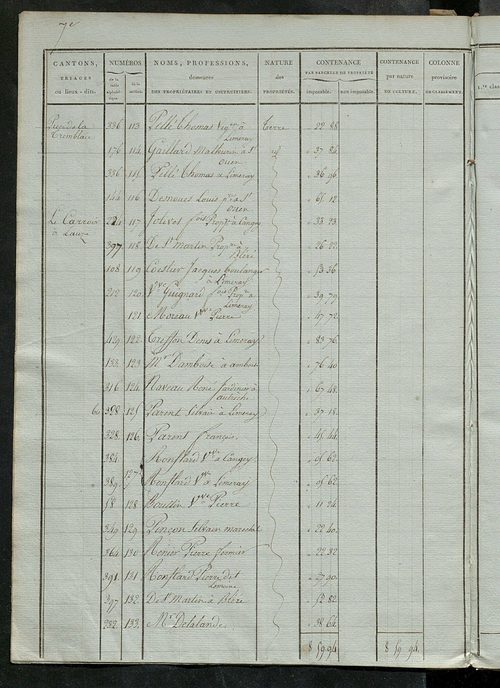 7e
CANTONS, TRIAGES ou lieux-dits.
NUMÉROS de la table alphabétique
NOMS, PROFESSIONS, demeures DES PROPRIÉTAIRES ET USUFRUITIERS.
NATURE des PROPRIÉTÉS.
CONTENANCE PAR PARCELLE DE PROPRIÉTÉ imposable. non imposable.
CONTENANCE par nature DE CULTURE.
COLONNE provisoire DE CLASSEMENT.
1.re clas
336 113 Pillé Thomas à Limeray Terre 22 88
176 114 Gaillard Mathurin à St Ouen 37 84
336 115 Pillé Thomas à Limeray 36 96
144 116 Desnoues Louis à St Ouen 61 12
Le Carroir à
224 117 à Cangey 33 23
397 118 De St Martin Propre à Bléré 26 22
108 119 Jacques boulanger à Limeray 13 56
212 120 Vve Guignard à Limeray 39 72
121 Moreau Vve Pierre 47 72
429 122 Denis à Limeray 89 76
133 123 Mr Damboise à amboise 76 40
316 124 Raveau René Jardinier à autrèche 67 48
125 Parent Silvain à Limeray 37 18
328 126 Parent François
384 Ronflard Vve à Cangey 05 62
127
389 Ronflard Vve à Limeray 05 62
18 128 Boussin Vve Pierre 11 24
349 129 Pinçon Silvain marechal 22 40
264 130 Menier Pierre fermier 22 82
391 131 Ronflard Pierre de Limeray 27 90
397 132 De St Martin à Bléré 12 82
232 133 Mr Delalande 38 64
8 59 94 8 59 94